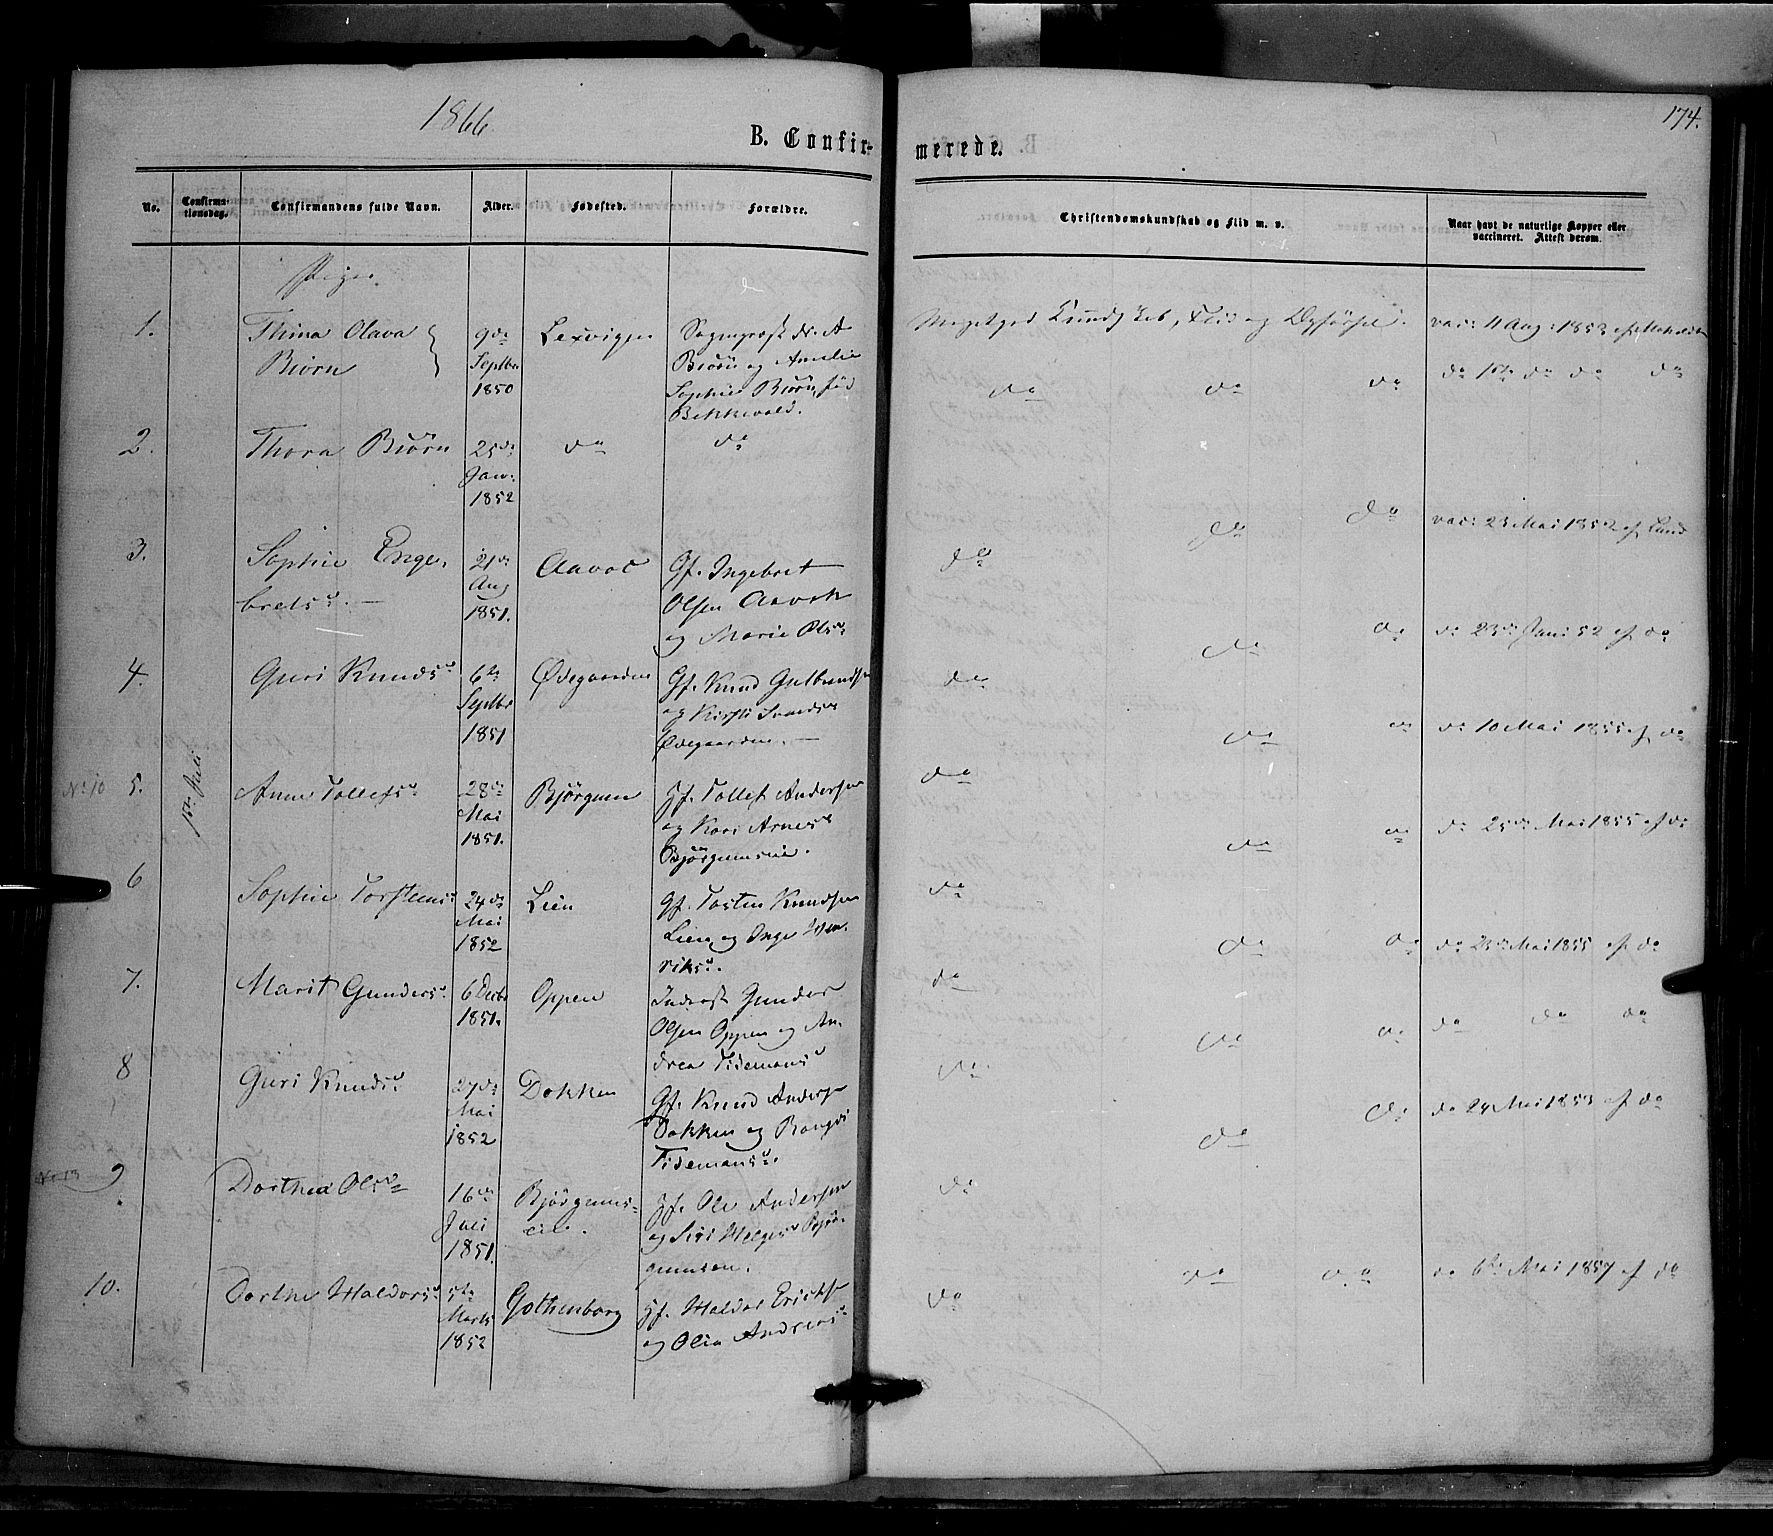 1866
174.
B. Confirmerede.
No.
Confirmationsdag.
Confirmandens fulde Navn.
Alder.
Fødested.
Forældre.
Christendomskundskab og Flid m. v.
Naar havt de naturlige Kopper eller vaccineret. Attest derom.
Piger.
1.
Thina Olava
Biørn
9de
Septbr
1850
Lexvigen
Sogneprest
Biørn og Amelie
Sophie Biørn, fød
Bekkevold.
Megetgod Kundskab, Flid og Opførsel.
vac: 11 Aug: 1853 af
2.
Thora Biørn
25de
Janr.
1852
do
do
do do do
do do do do
3.
Sophie Enge-
bretsd. —
21de
Aug
1851.
Aavoc
Gf. Ingebret
Olsen Aavok
og Marie Olsd.
do do do
vac: 23 Mai 1852 af Lund
4.
Guri Knudsd.
6te
Septbr
1851
Ødegaarden
Gf. Knud Gulbrandsen
og Kirsti
Ødegaarden. —
do do do
do 23de Juni 52 af do
1ste Juli
No. 10
5.
Anne Tollefsd.
28de
Mai
1851.
Bjørgum
Hf. Tollef Andersen
og Kari Arnesd.
Bjørgumseie.
do do do
do 10 Mai 1855 af do
6
Sophie Torstensd.
24de
Mai
1852
Lien
Gf. Torsten Knudsen
Lien og Inge Hen-
riksd.
do do do
do 25de Mai 1855 af do
7.
Marit Gundersd.
6 Decbr
1851.
Oppen
Inderst Gunder
Olsen Oppen og An-
drea Tidemansd.
do do do
do 25de Mai 1855 af do
8
Guri Knudsd.
27de
Mai
1852
Dokken
Gf. Knud Andersen
Dokken og Rangdi
Tidemansd.
do do do
do do do
9
Dorthea Olsd.
16de
Juli
1851.
Bjørgums-
eie.
Hf. Ole Andersen
og Siri Helgesd. Bjør-
gumseie.
do do do
do 24 Mai 1853 af do
10.
Dorthe Haldorsd.
5te
Marts
1852
Gothenborg
Hf. Haldor Ericks.
og Olia Andreasd.
do do do
do 6te Mai 1857 af do